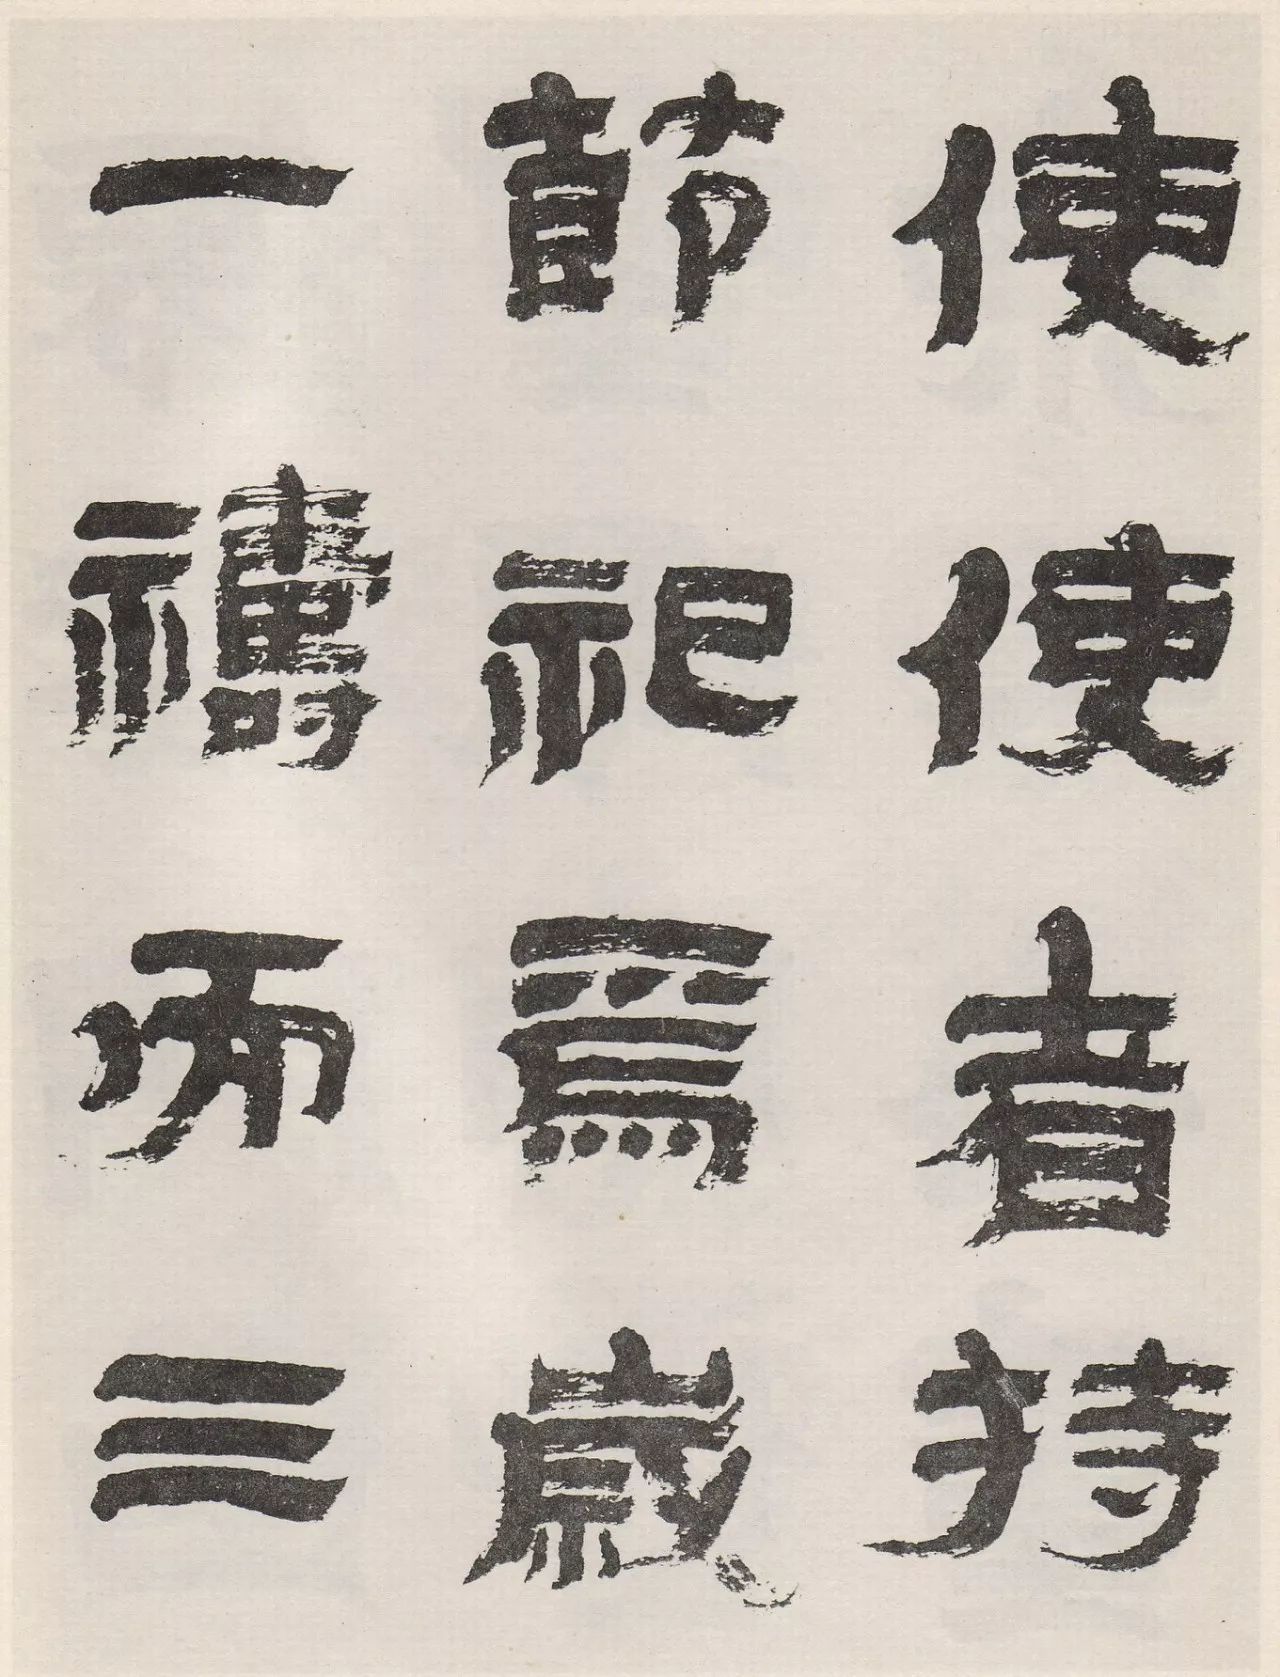 使使者持
節祀焉歲
一禱而三